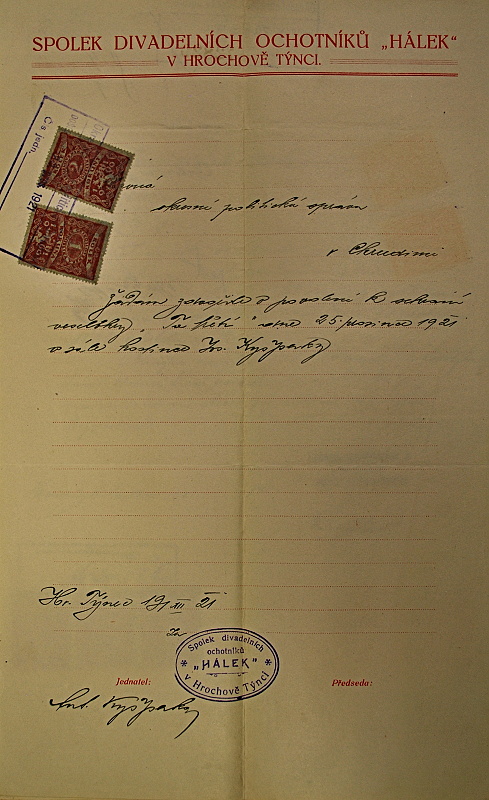 SPOLEK DIVADELNÍCH OCHOTNÍKŮ „HÁLEK“
V HROCHOVĚ TÝNCI.
Čs jedn.
1921
okresní politická správa
v Chrudimi
Žádám zdvořile o povolení k sehrání
veselohry „Ta třetí“ dne 25. prosince 1921
v sále hostince Jos. Kyšperky
Hr. Týnec 19/XII 21
Za
Spolek divadelních
ochotníků
„HÁLEK“
v Hrochově Týnci
Jednatel: Předseda:
Ant. Kyšperky